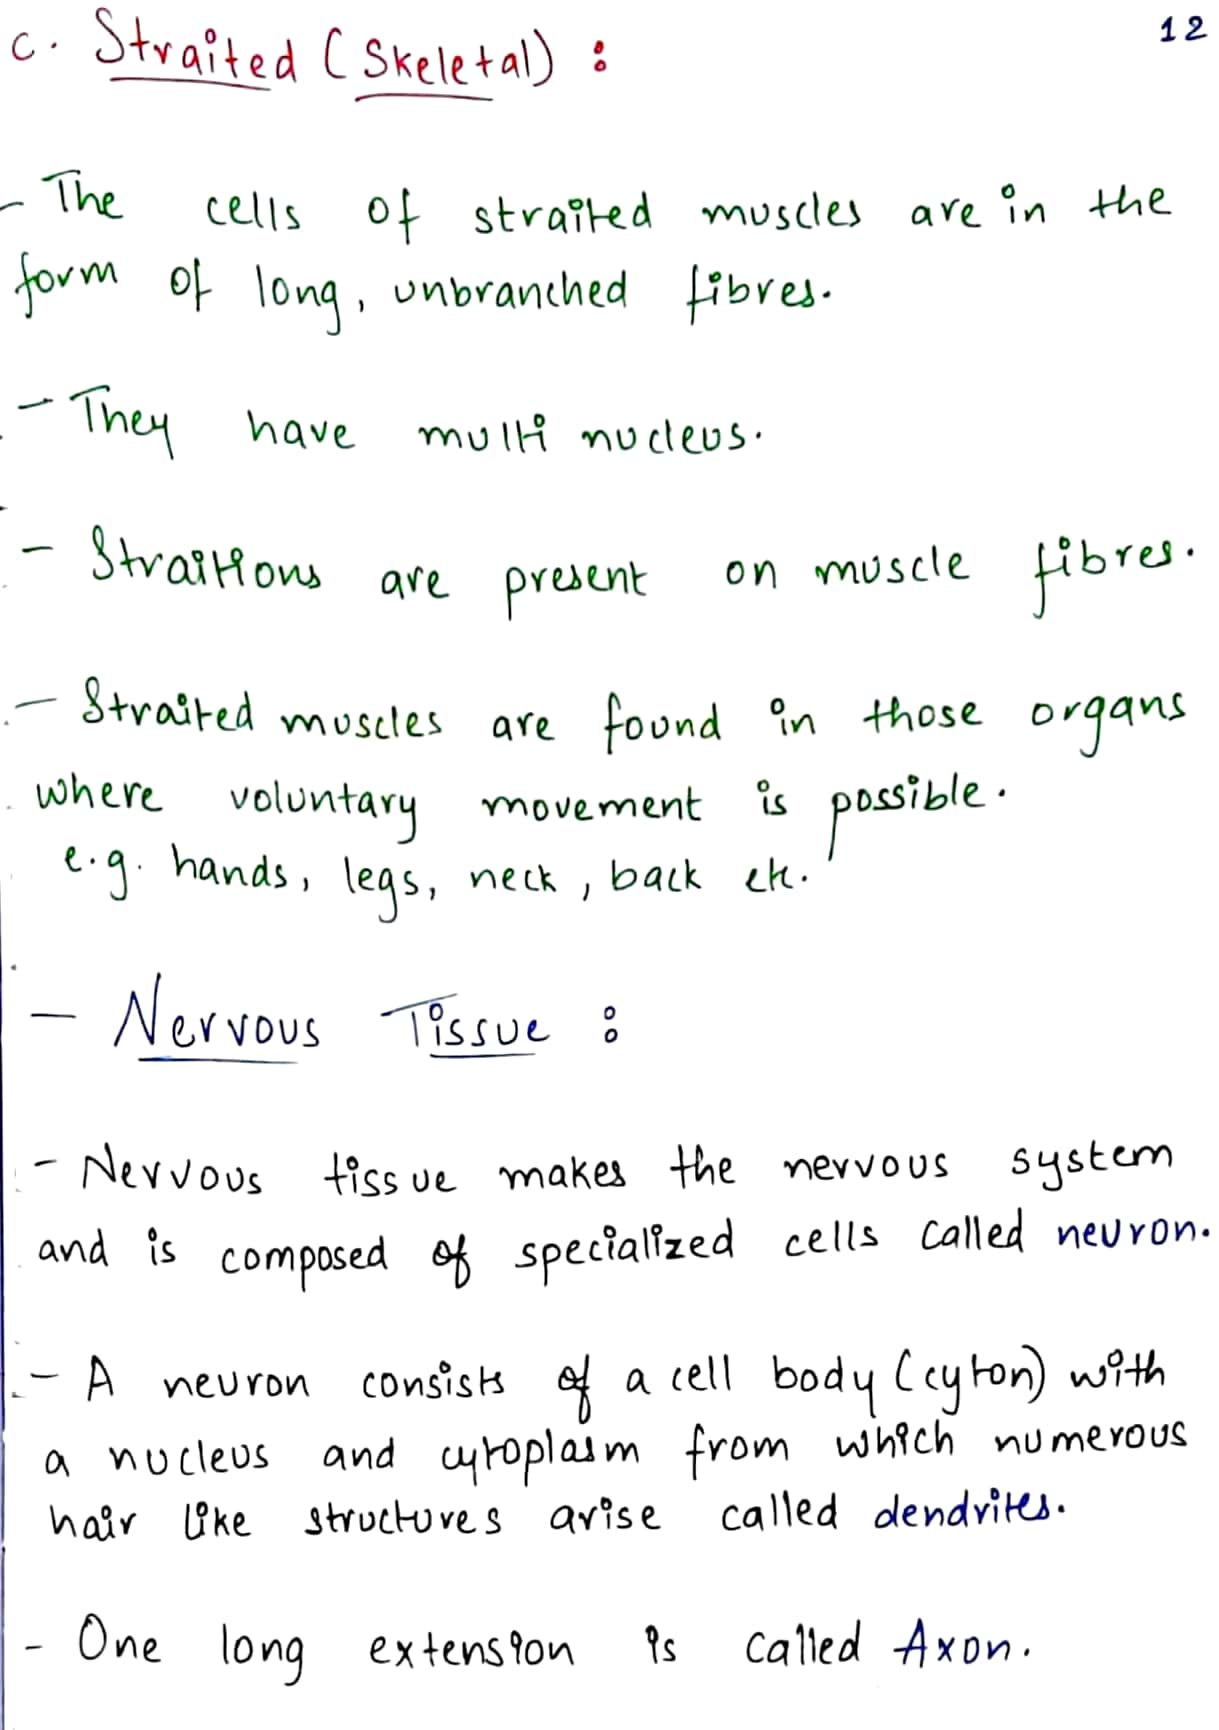 c. Straited (Skeletal) :
12
- The cells of straited muscles are in the
form of long, unbranched fibres.
- They have multi nucleus.
- Straitions are present on muscle fibres.
- Straited muscles are found in those organs
where voluntary movement is possible.
e.g. hands, legs, neck, back etc.
- Nervous Tissue :
- Nervous tissue makes the nervous system
and is composed of specialized cells called neuron.
- A neuron consists of a cell body (cyton) with
a nucleus and cytoplasm from which numerous
hair like structures arise called dendrites.
- One long extension is called Axon.